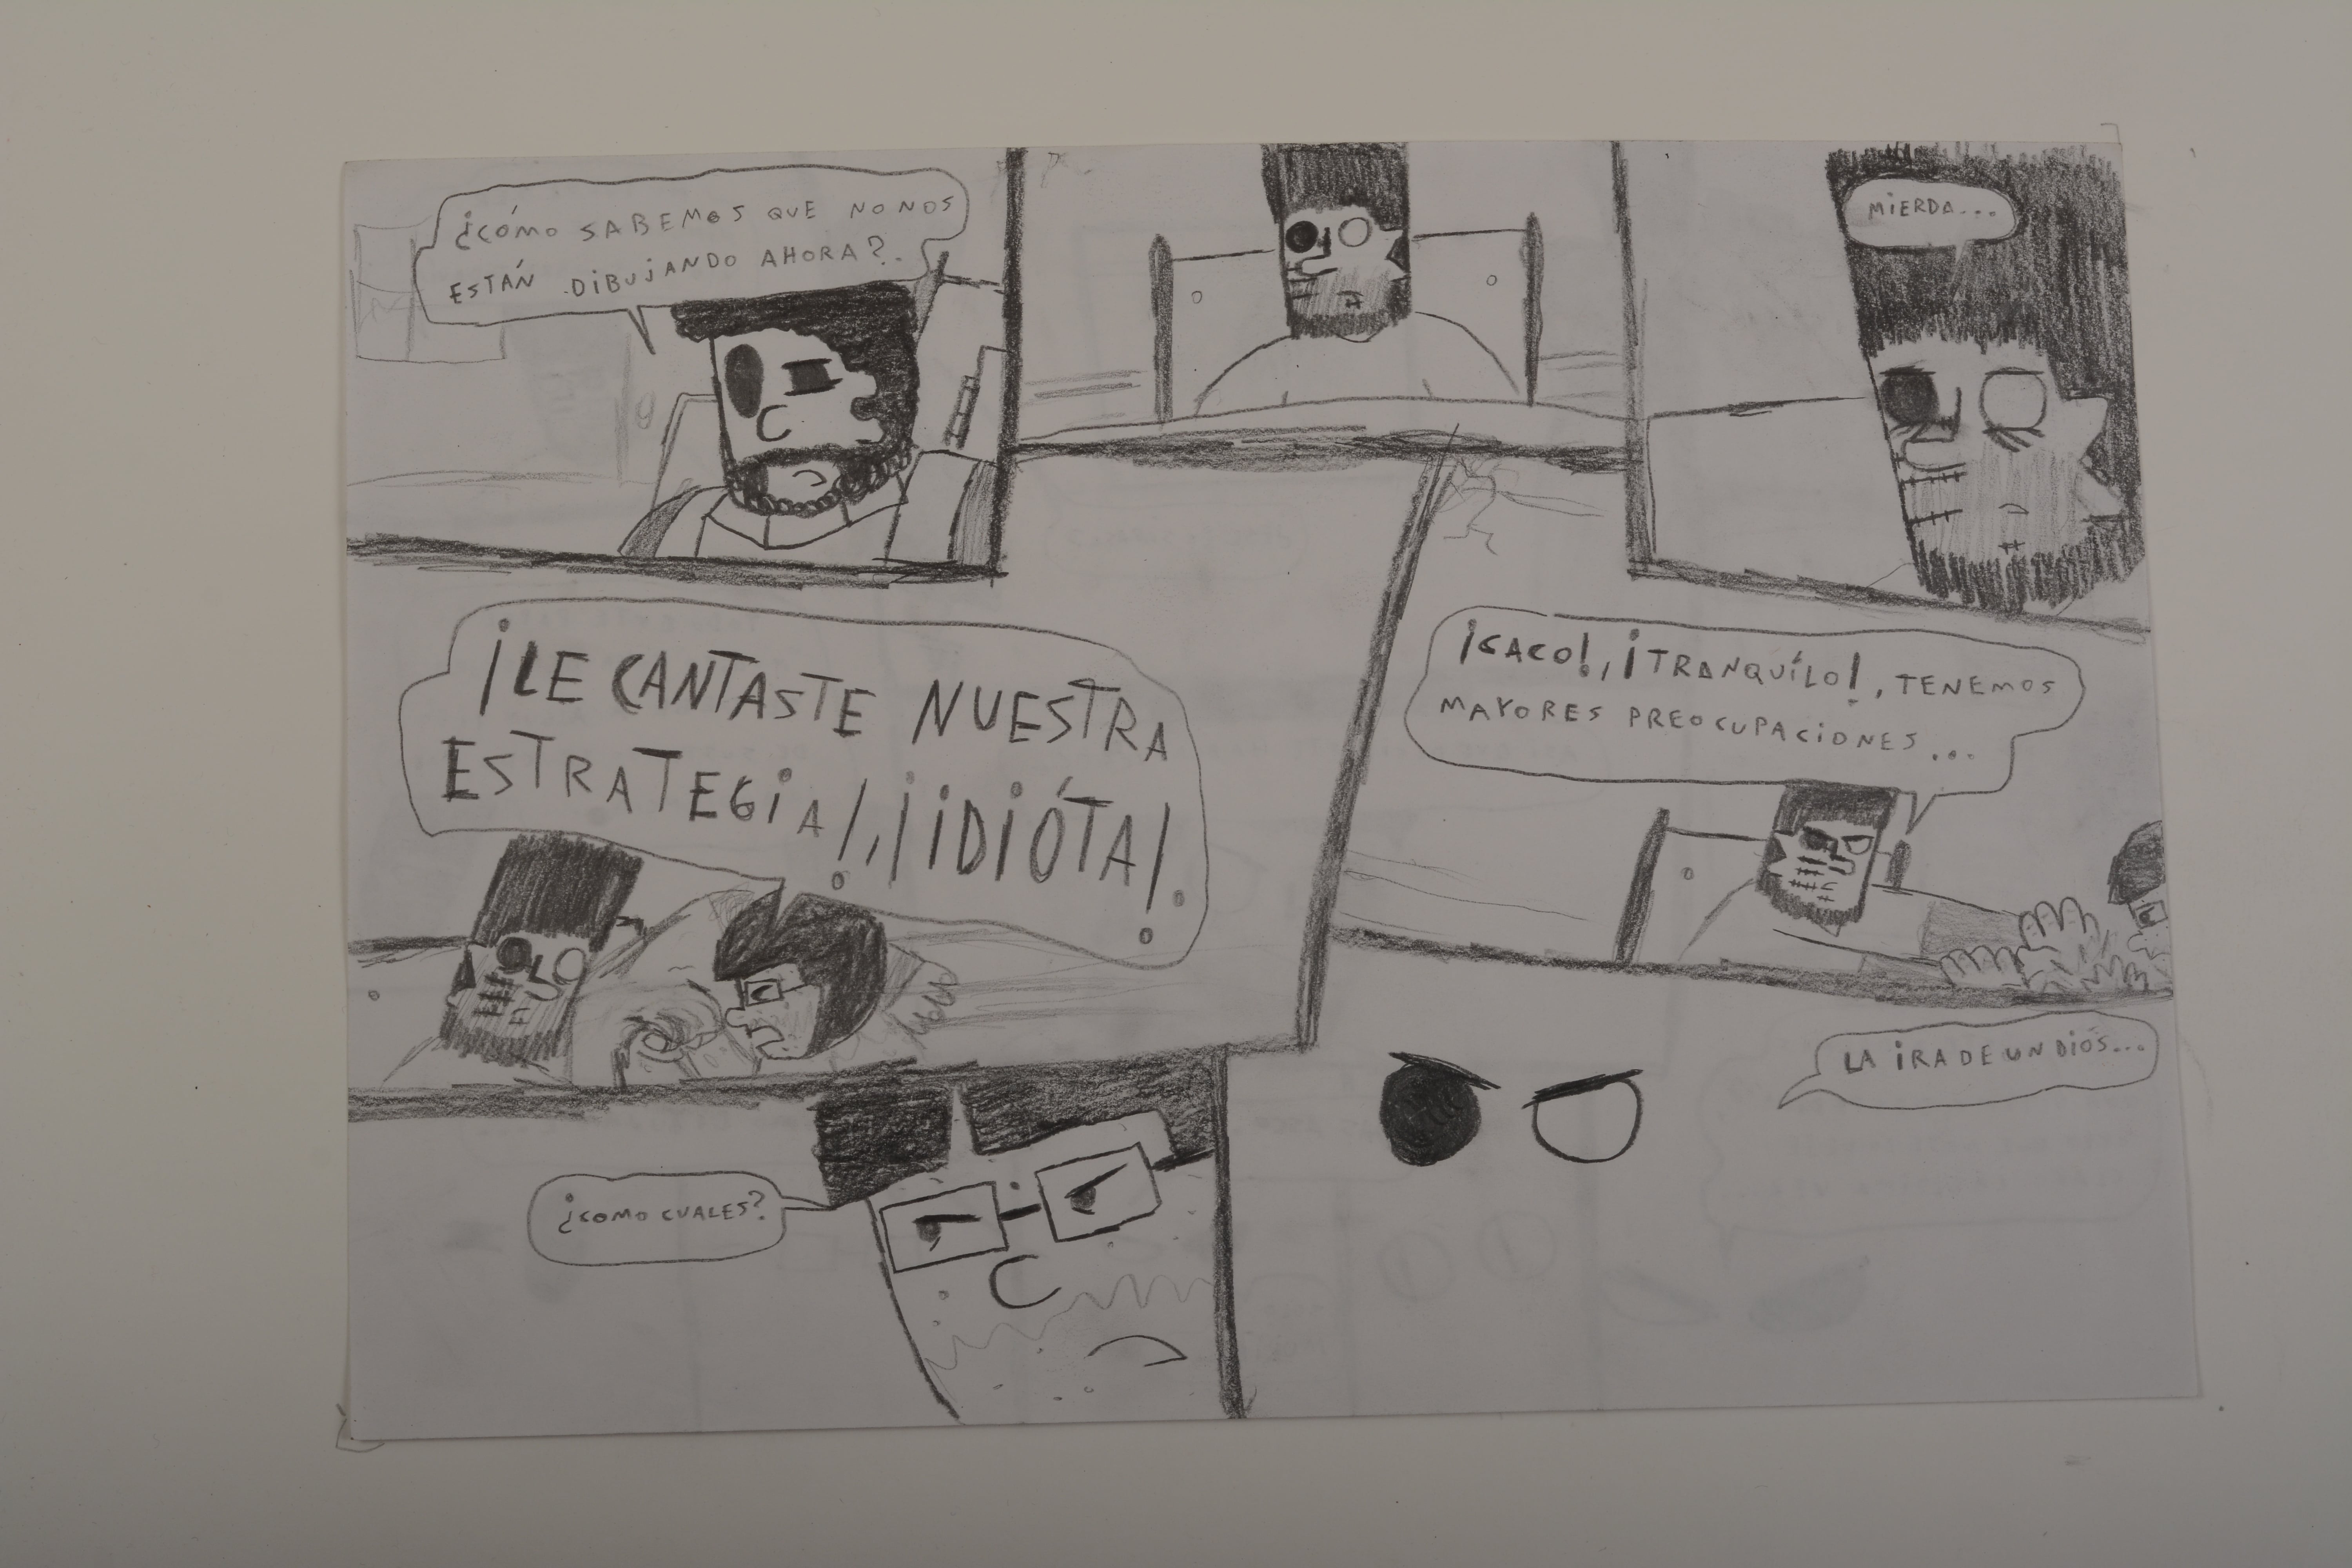 ¿CÓMO SABEMOS QUE NO NOS
ESTÁN DIBUJANDO AHORA?.
MIERDA...
¡LE CANTASTE NUESTRA
ESTRATEGIA!, ¡IDIÓTA!.
¡CACO!, ¡TRANQUÍLO!, TENEMOS
MAYORES PREOCUPACIONES...
¿COMO CUALES?
LA IRA DE UN DIÓS...